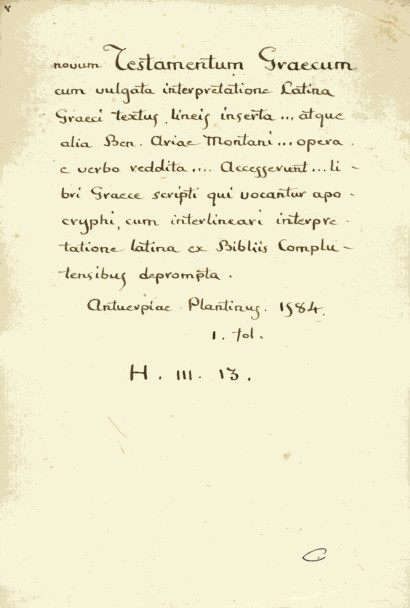 novum Testamentum Graecum
cum vulgata interpretatione Latina
Graeci textus lineis inserta ... atque
alia Ben. Ariae Montani ... opera.
e verbo reddita .... Accesserunt ... li-
bri Graece scripti qui vocantur apo-
cryphi, cum interlineari interpre-
tatione latina ex Bibliis Complu-
tensibus deprompta.
Antuerpiae. Plantinus. 1584.
1. fol.
H. III. 13.